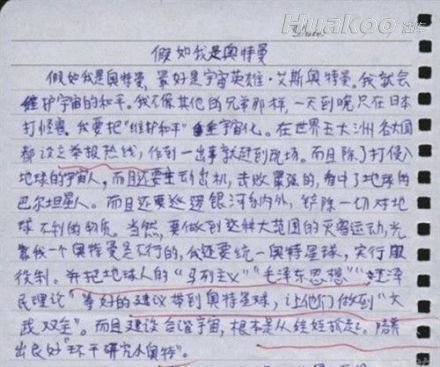 Huakoo
假如我是奥特曼
假如我是奥特曼,最好是宇宙英雄·艾斯奥特曼。我就会
维护宇宙的和平。我不像其他的兄弟那样,一天到晚只在日本
打怪兽。我要把“维护和平”宇宙化。在世界五大洲各大国
都设立举报热线,作到一出事就赶到现场。而且除了打侵入
地球的宇宙人,而且还要主动出机,击败累强的,看中了地球的
巴尔坦星人。而且还要巡逻银河系内外,铲除一切对地
球不利的物质。当然,要做到这种大范围的灭害运动,光
靠我一个奥特曼是不行的,我还要统一奥特星球,实行服
役制。并把地球人的“马列主义”“毛泽东思想”“江泽
民理论”等好的建议带到奥特星球,让他们做到“文
武双全”。而且建设合谐宇宙,根本是从娃娃抓起。培养
出良好“环干研究水奥特”。